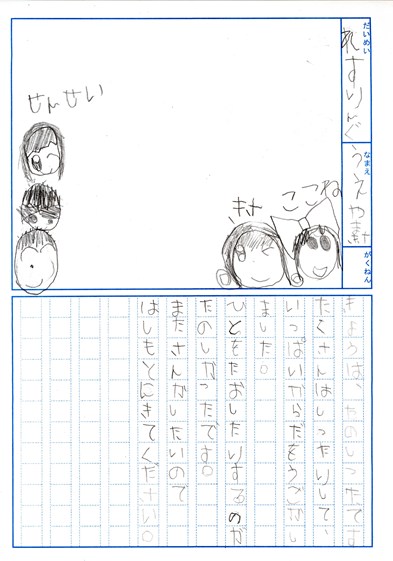 だいめい
れすりんぐ
なまえ
うえ
がくねん
せんせい
ここね
きょうは、たのしったです
たくさんはしったりして、
いっぱいからだをうごかし
ました。
ひとをたおしたりするのが
たのしかったです。
またさんかしたいので
はしもとにきてください。